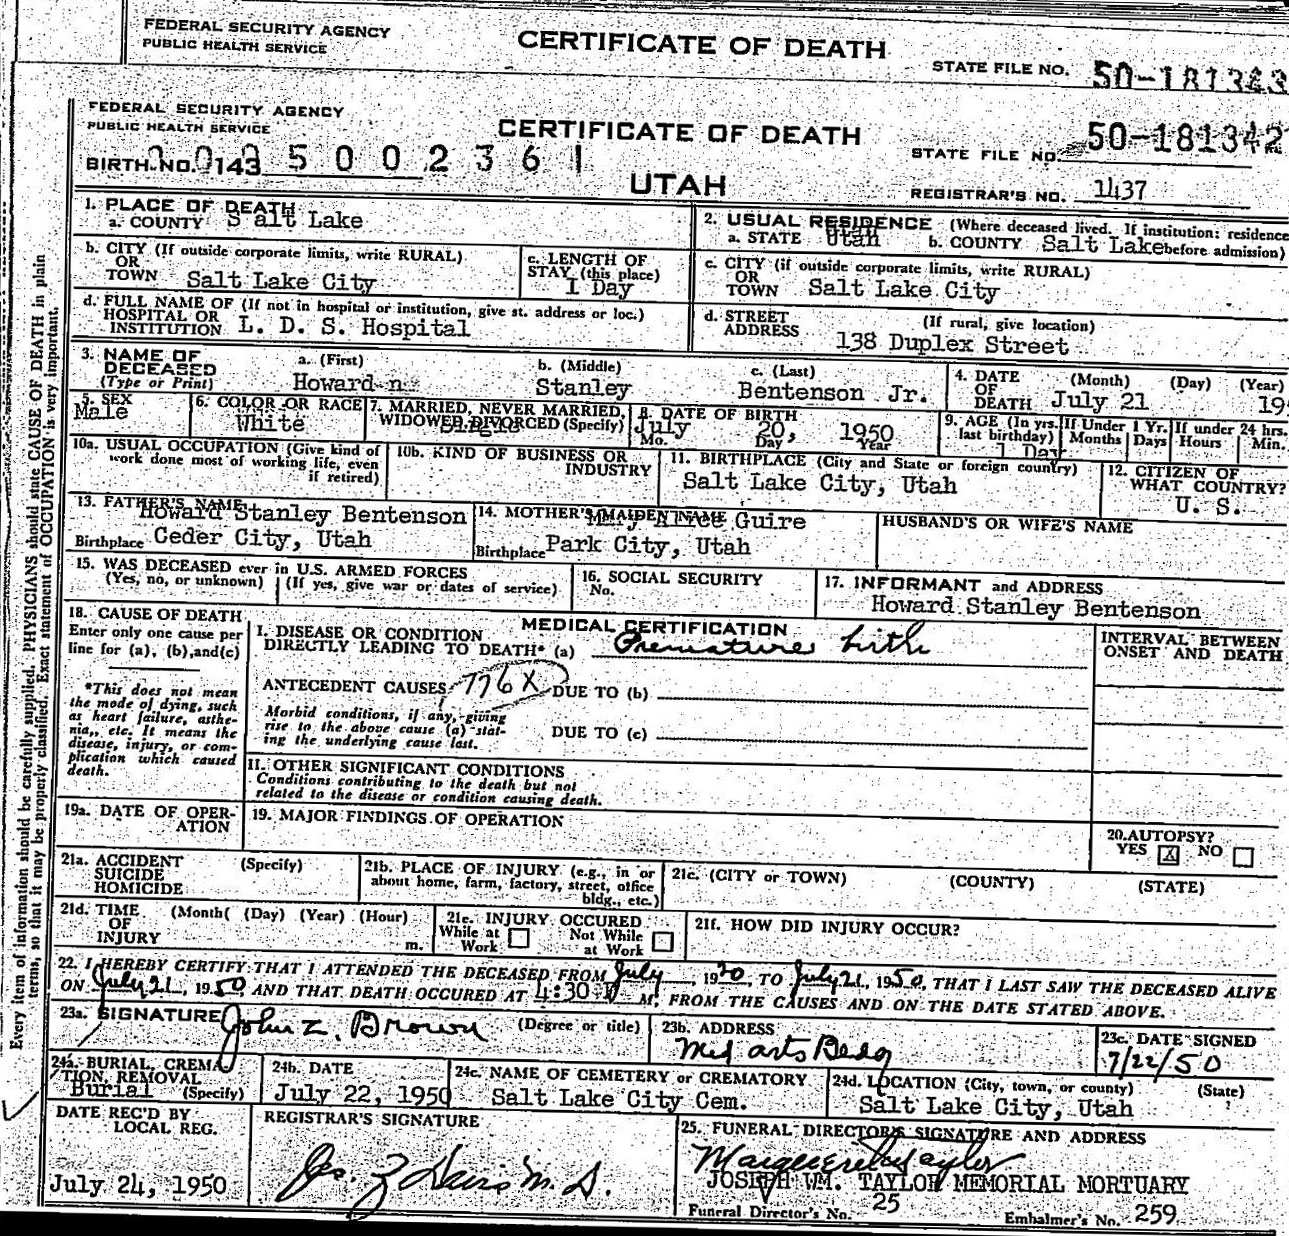 FEDERAL SECURITY AGENCY
PUBLIC HEALTH SERVICE
CERTIFICATE OF DEATH
STATE FILE NO. 50-181343
FEDERAL SECURITY AGENCY
PUBLIC HEALTH SERVICE
CERTIFICATE OF DEATH
STATE FILE NO. 50-181342
BIRTH NO. 143 5 0 0 2 3 6 1
UTAH
REGISTRAR'S NO. 1437
Every item of information should be carefully supplied. PHYSICIANS should state CAUSE OF DEATH in plain
terms, so that it may be properly classified. Exact statement of OCCUPATION is very important.
1. PLACE OF DEATH
a. COUNTY Salt Lake
2. USUAL RESIDENCE (Where deceased lived. If institution: residence
a. STATE Utah b. COUNTY Salt Lake before admission)
b. CITY (If outside corporate limits, write RURAL)
OR
TOWN Salt Lake City
c. LENGTH OF
STAY (this place)
1 Day
c. CITY (if outside corporate limits, write RURAL)
OR
TOWN Salt Lake City
d. FULL NAME OF (If not in hospital or institution, give st. address or loc.)
HOSPITAL OR
INSTITUTION L. D. S. Hospital
d. STREET (If rural, give location)
ADDRESS 138 Duplex Street
3. NAME OF
DECEASED
(Type or Print)
a. (First) b. (Middle) c. (Last)
Howard n Stanley Bentenson Jr.
4. DATE (Month) (Day) (Year)
OF
DEATH July 21 19
5. SEX
Male
6. COLOR OR RACE
White
7. MARRIED, NEVER MARRIED,
WIDOWED, DIVORCED (Specify)
Single
8. DATE OF BIRTH
July 20, 1950
Mo. Day Year
9. AGE (In yrs. If Under 1 Yr. If under 24 hrs.
last birthday) Months Days Hours Min.
1 Day
10a. USUAL OCCUPATION (Give kind of
work done most of working life, even
if retired)
10b. KIND OF BUSINESS OR
INDUSTRY
11. BIRTHPLACE (City and State or foreign country)
Salt Lake City, Utah
12. CITIZEN OF
WHAT COUNTRY?
U. S.
13. FATHER'S NAME
Howard Stanley Bentenson
Birthplace Ceder City, Utah
14. MOTHER'S MAIDEN NAME
Mary Alice Guire
Birthplace Park City, Utah
HUSBAND'S OR WIFE'S NAME
15. WAS DECEASED ever in U.S. ARMED FORCES
(Yes, no, or unknown) (If yes, give war or dates of service)
16. SOCIAL SECURITY
No.
17. INFORMANT and ADDRESS
Howard Stanley Bentenson
18. CAUSE OF DEATH
Enter only one cause per
line for (a), (b), and (c)
*This does not mean
the mode of dying, such
as heart failure, asthe-
nia, etc. It means the
disease, injury, or com-
plication which caused
death.
MEDICAL CERTIFICATION
I. DISEASE OR CONDITION
DIRECTLY LEADING TO DEATH* (a) Premature birth
ANTECEDENT CAUSES 776X DUE TO (b)
Morbid conditions, if any, giving
rise to the above cause (a) stat-
ing the underlying cause last.
DUE TO (c)
II. OTHER SIGNIFICANT CONDITIONS
Conditions contributing to the death but not
related to the disease or condition causing death.
INTERVAL BETWEEN
ONSET AND DEATH
19a. DATE OF OPER-
ATION
19. MAJOR FINDINGS OF OPERATION
20. AUTOPSY?
YES X NO
21a. ACCIDENT (Specify)
SUICIDE
HOMICIDE
21b. PLACE OF INJURY (e.g., in or
about home, farm, factory, street, office
bldg., etc.)
21c. (CITY or TOWN) (COUNTY) (STATE)
21d. TIME (Month( (Day) (Year) (Hour)
OF
INJURY m.
21e. INJURY OCCURED
While at Work Not While at Work
21f. HOW DID INJURY OCCUR?
22. I HEREBY CERTIFY THAT I ATTENDED THE DECEASED FROM July, 1920, TO July 21, 1950, THAT I LAST SAW THE DECEASED ALIVE
ON July 21, 1950, AND THAT DEATH OCCURED AT 4:30 M. FROM THE CAUSES AND ON THE DATE STATED ABOVE.
23a. SIGNATURE John Z. Brown (Degree or title)
23b. ADDRESS
Med arts Bldg
23c. DATE SIGNED
7/22/50
24a. BURIAL, CREMA-
TION, REMOVAL
Burial (Specify)
24b. DATE
July 22, 1950
24c. NAME OF CEMETERY or CREMATORY
Salt Lake City Cem.
24d. LOCATION (City, town, or county) (State)
Salt Lake City, Utah
DATE REC'D BY
LOCAL REG.
July 24, 1950
REGISTRAR'S SIGNATURE
Jos. Z Davis M. D.
25. FUNERAL DIRECTOR'S SIGNATURE AND ADDRESS
Marguerite Taylor
JOSEPH WM. TAYLOR MEMORIAL MORTUARY
Funeral Director's No. 25 Embalmer's No. 259